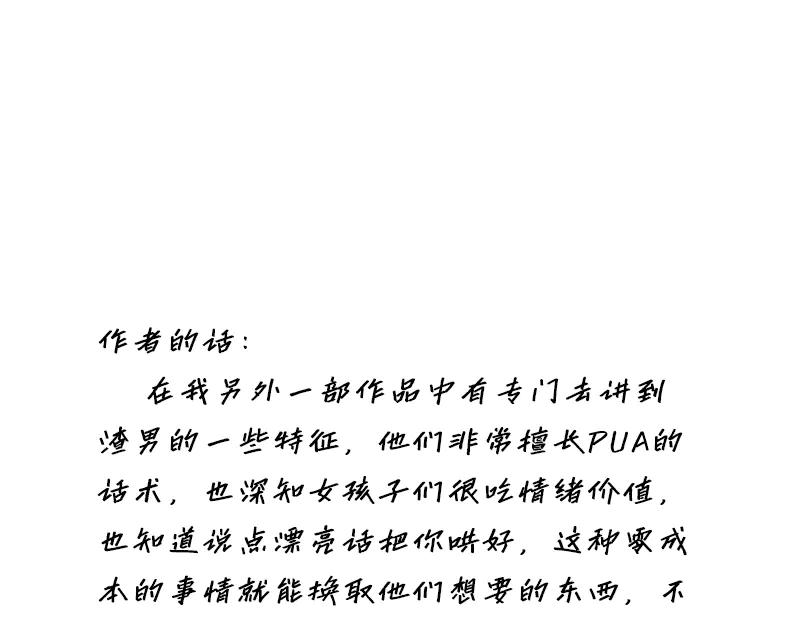 作者的话：
在我另外一部作品中有专门去讲到
渣男的一些特征，他们非常擅长PUA的
话术，也深知女孩子们很吃情绪价值，
也知道说点漂亮话把你哄好，这种零成
本的事情就能换取他们想要的东西，不